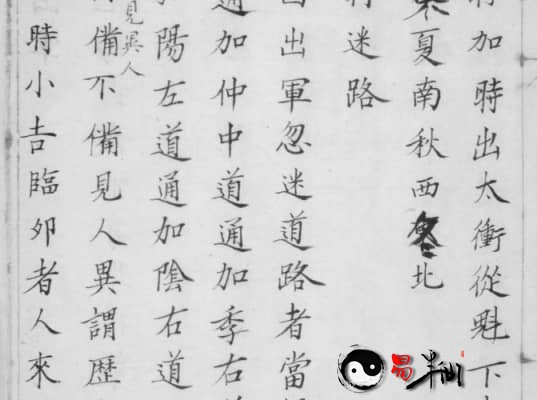 加時出太衝從魁下
夏南秋西冬北
迷路
出軍忽迷道路者當
通加仲中道通加季右
陽左道通加陰右道
見異人
備不備見人異謂歷
時小吉臨夘者人來
易半仙